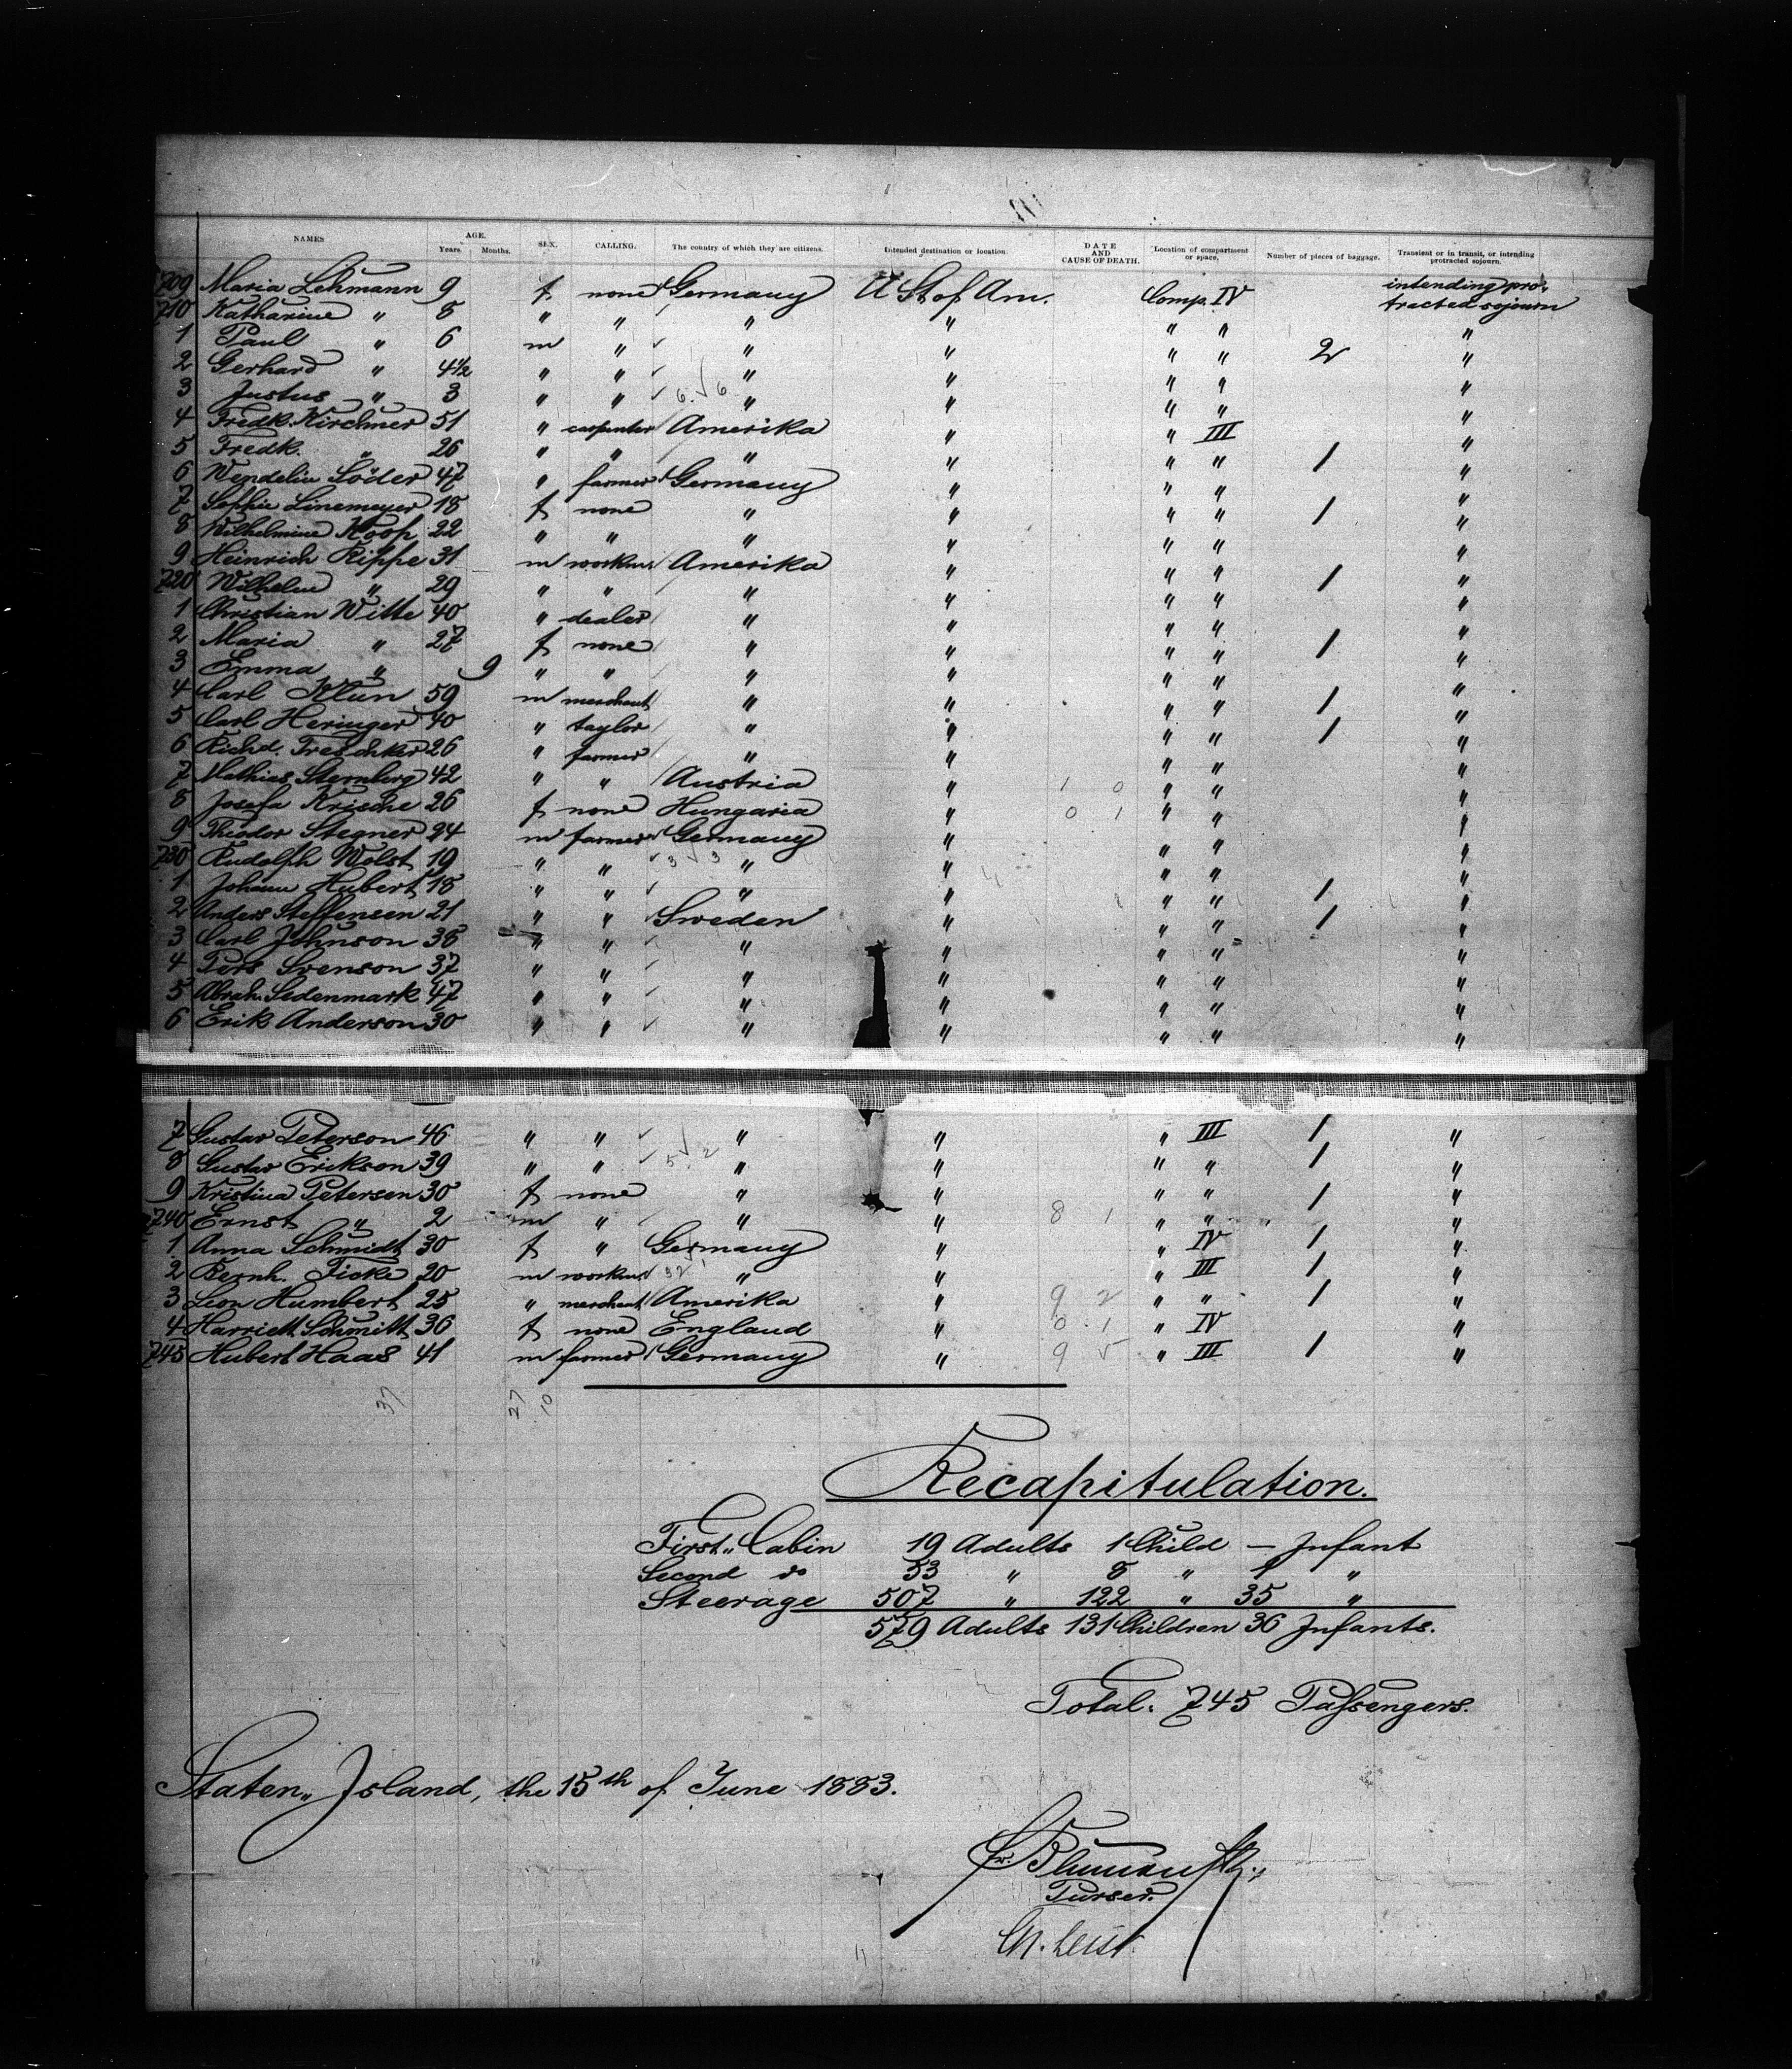 NAMES AGE. Years. Months. SEX. CALLING. The country of which they are citizens. Intended destination or location. DATE AND CAUSE OF DEATH. Location of compartment or space. Number of pieces of baggage. Transient or in transit, or intending protracted sojourn.
709 Maria Lehmann 9 f none Germany U St of Am. Comp. IV intending pro-
tracted sojourn
710 Katharine " 8 " " " " " " "
1 Paul " 6 m " " " " " 2 "
2 Gerhard " 4½ " " " " " " "
3 Justus " 3 " " 6 6 " " " " "
4 Fredk. Kirchner 51 " carpenter Amerika " " III "
5 Fredk. " 26 " " " " " " 1 "
6 Wendelin Söder 47 " farmer Germany " " " "
7 Sophie Linemeyer 18 f none " " " " 1 "
8 Wilhelmine Koop 22 " " " " " " "
9 Heinrich Rippe 31 m workm. Amerika " " " "
720 Wilhelm " 29 " " " " " " 1 "
1 Christian Witte 40 " dealer " " " " "
2 Maria " 27 f none " " " " 1 "
3 Emma " 9 " " " " " " "
4 Carl Klun 59 m merchant " " " " 1 "
5 Carl Heringer 40 " taylor " " " " 1 "
6 Richd. Treschker 26 " farmer " " " " "
7 Mathias Sternberg 42 " " Austria " 1 0 " " "
8 Josefa Krische 26 f none Hungaria " 0 1 " " "
9 Theodor Stegner 24 m farmer Germany " " " "
730 Rudolph Wolst 19 " " 3 3 " " " " "
1 Johann Hubert 18 " " " " " " 1 "
2 Anders Steffensen 21 " " Sweden " " " 1 "
3 Carl Johnson 38 " " " " " " "
4 Pers Svenson 37 " " " " " " "
5 Abrah. Sedenmark 47 " " " " " " "
6 Erik Anderson 30 " " " " " " "
7 Gustav Peterson 46 " " " " " III 1 "
8 Gustav Erikson 39 " " 5 2 " " " " 1 "
9 Kristina Petersen 30 f none " " " " 1 "
740 Ernst " 2 m " " " 8 1 " " "
1 Anna Schmidt 30 f " Germany " " IV 1 "
2 Bernh. Ficke 20 m workm. " " " III 1 "
3 Leon Humbert 25 " merchant Amerika " 9 2 " " 1 "
4 Harriett Schmitt 36 f none England " 0 1 " IV "
745 Hubert Haas 41 m farmer Germany " 9 5 " III 1 "
37 27 10
Recapitulation.
First „ Cabin 19 Adults 1 Child — Infant
Second do 53 " 8 " 1 "
Steerage 507 " 122 " 35 "
579 Adults 131 Children 36 Infants.
Total: 745 Passengers.
Staten „ Island, the 15th of June 1883.
Purser.